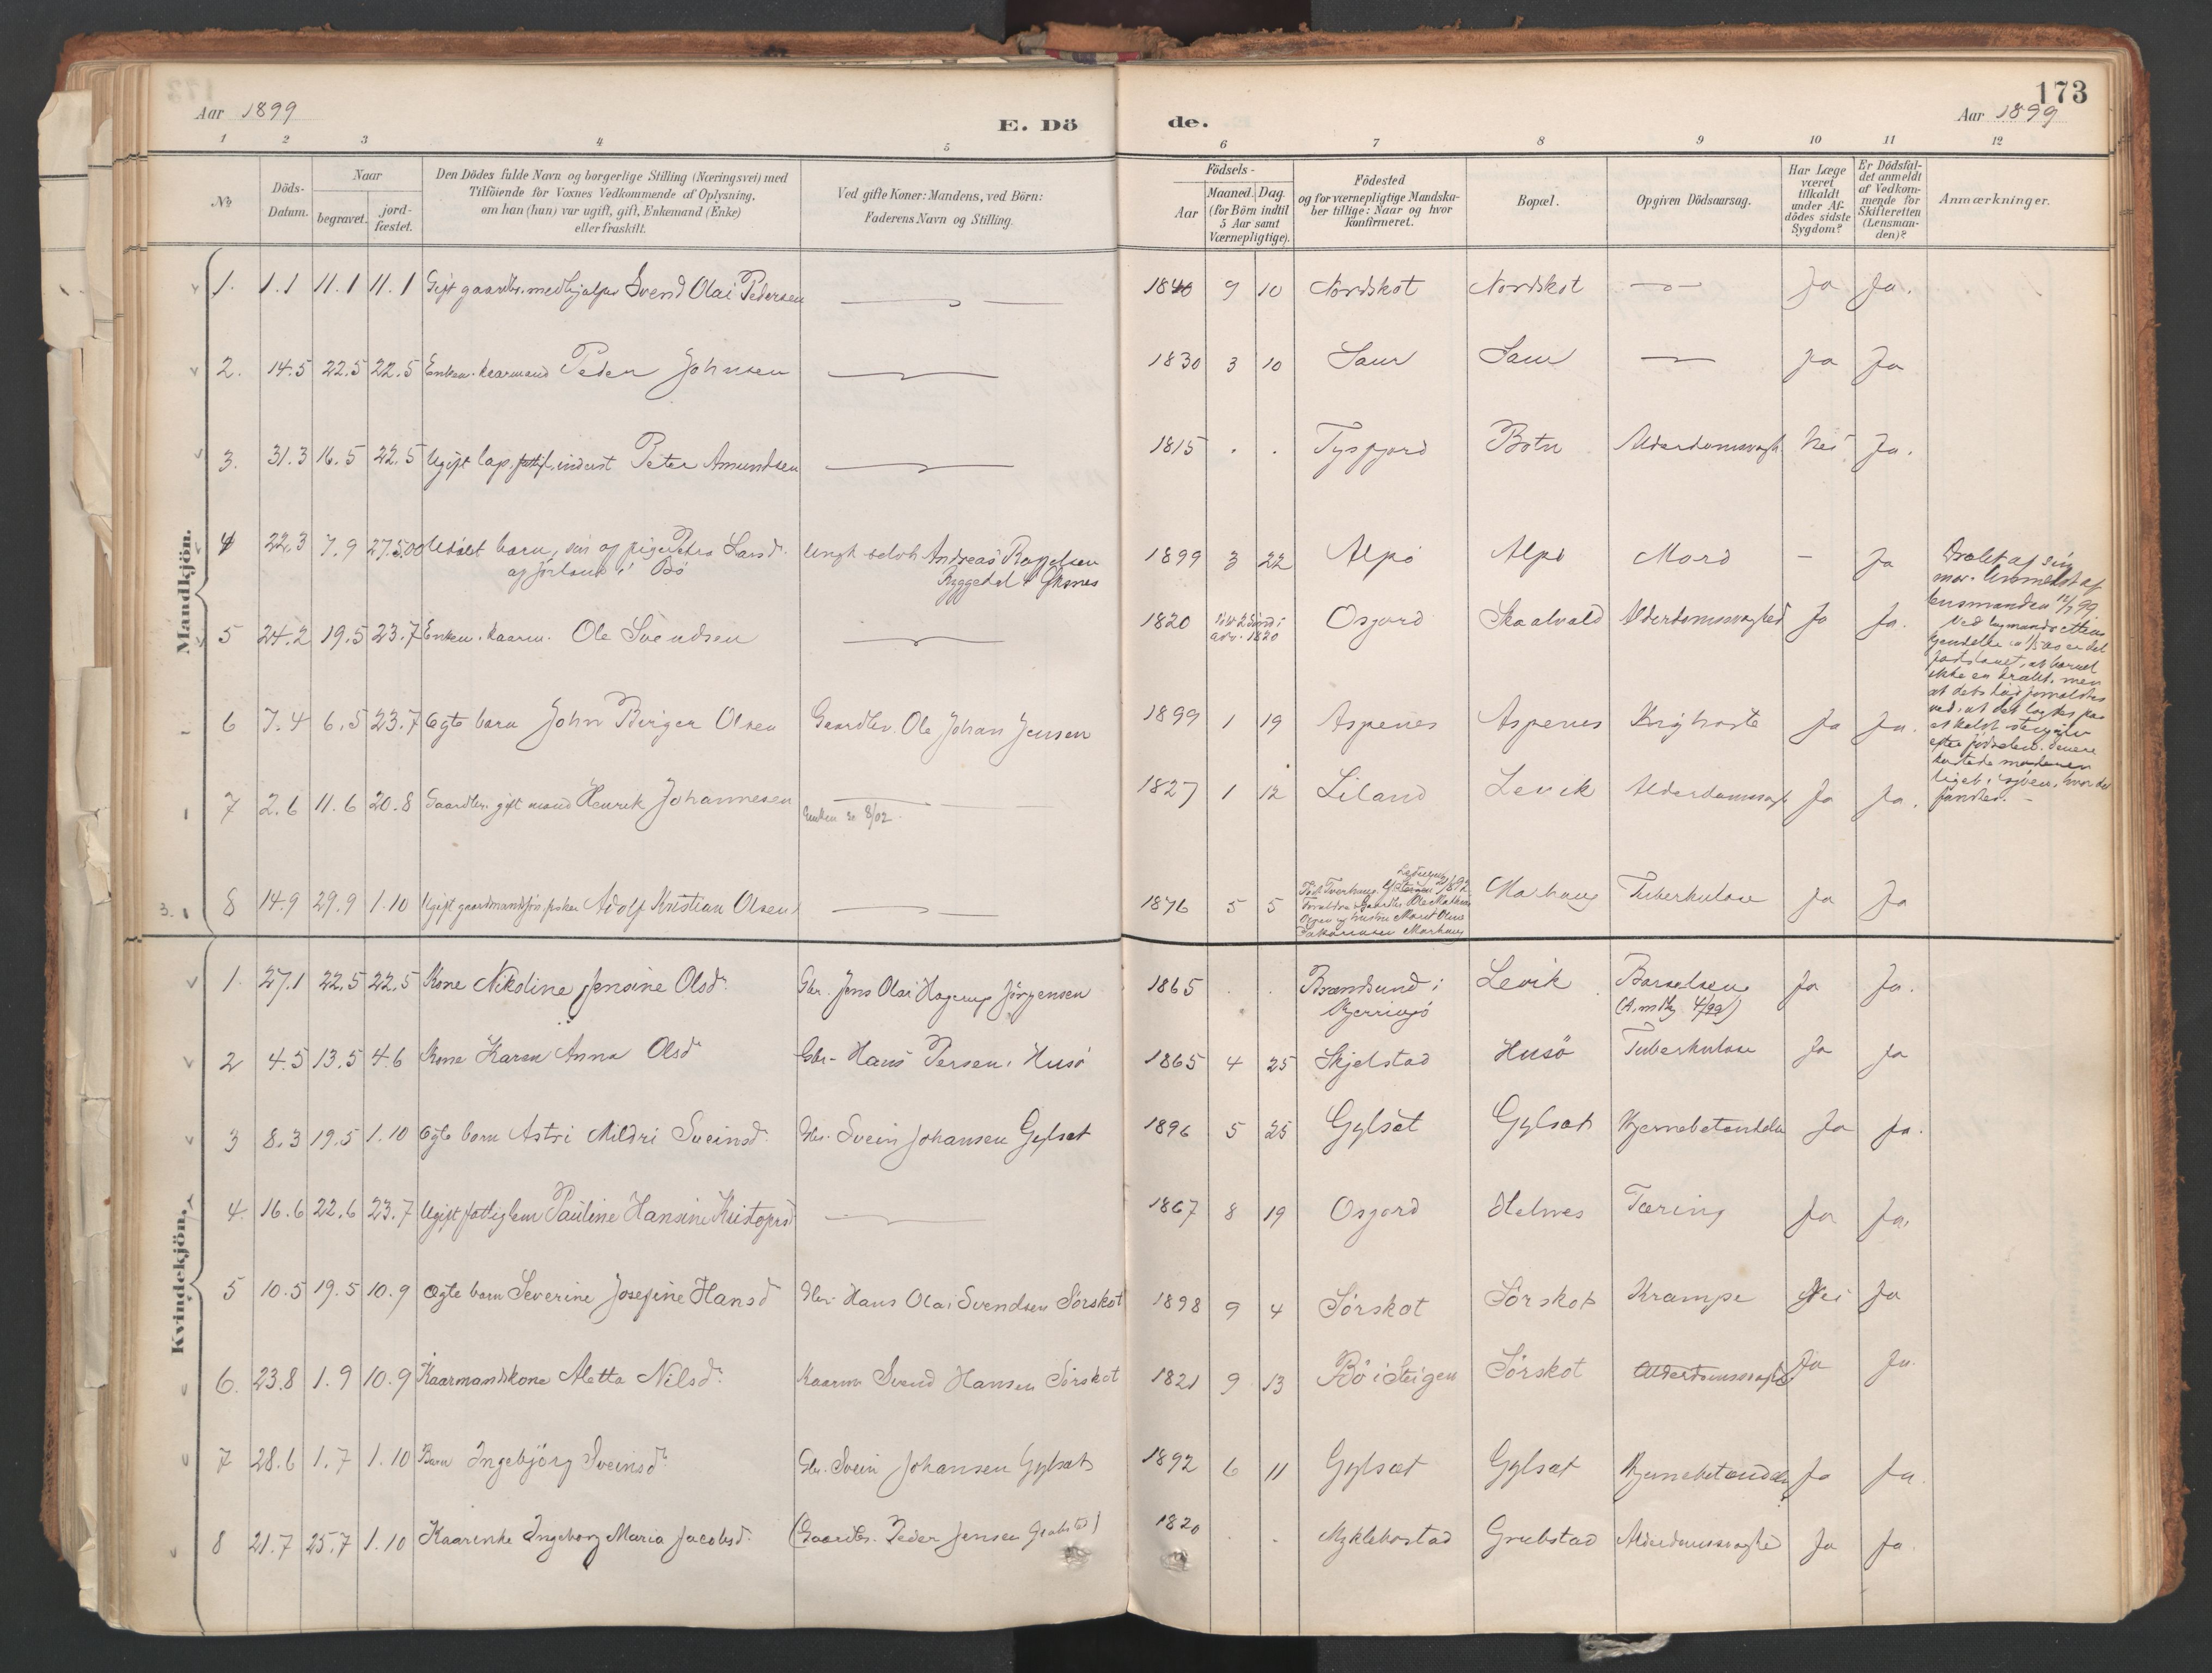 Aar 1899
E. Dö
de.
173
Aar 1899
1 2 3 4 5 6 7 8 9 10 11 12
№
Döds-Datum.
Naar
begravet.
jord-fæstet.
Den Dödes fulde Navn og borgerlige Stilling (Næringsvei) med
Tilföiende for Voxnes Vedkommende af Oplysning,
om han (hun) var ugift, gift, Enkemand (Enke)
eller fraskilt.
Ved gifte Koner: Mandens, ved Börn:
Faderens Navn og Stilling.
Födsels-
Aar
Maaned. Dag.
(for Börn indtil
5 Aar samt
Værnepligtige).
Födested
og for værnepligtige Mandska-
ber tillige: Naar og hvor
konfirmeret.
Bopæl.
Opgiven Dödsaarsag.
Har Læge
været
tilkaldt
under Af-
dödes sidste
Sygdom?
Er Dödsfal-
det anmeldt
af Vedkom-
mende for
Skifteretten
(Lensman-
den)?
Anmærkninger.
Mandkjön.
1. 1.1 11.1 11.1 Gift gaardbr. medhjelper Svend Olai Pedersen 1840 9 10 Nordskot Nordskot Ja Ja.
2. 14.5 22.5 22.5 Enkem. kaarmand Peder Johnsen 1830 3 10 Saur Saur Ja Ja
3. 31.3 16.5 22.5 Ugift lap, inderst Peter Amundsen 1815 . . Tysfjord Botn Alderdomssvagh. Nei Ja.
4 22.3 7.9 27.5.00 Udøbt barn, søn af pige Petra Larsd. Ungk. Andreas 1899 3 22 Alpø Alpø Mord - Ja
af Jørland i Bø
Ryggedal i Øksnes
Dræbt af sin
mor. Anmeldt af
lensmanden 12/7 99
Ved lagmandsrettens
kjendelse
at barnet
ikke er dræbt, men
at dets død forvoldtes
ved, at det lagdes paa
et koldt stengulv
efter fødselen. Senere
kastede moderen
liget i sjøen, hvor det
fandtes. -
5 24.2 19.5 23.7 Enkem. kaarm. Ole Svendsen 1820 2 Sønd. i adv. 1820 Osjord Skaalvold Alderdomssvaghed Ja Ja.
6 7.4 6.5 23.7 Egte barn John Birger Olsen Gaardbr. Ole Johan Jensen 1899 1 19 Aspenes Aspenes Kighoste Ja Ja.
7 2.6 11.6 20.8 Gaardbr. gift mand Henrik Johannesen Enken 8/02 1827 1 12 Liland Levik Alderdomssvagh Ja Ja.
3. 8 14.9 29.9 1.10 Ugift gaardmandssøn fisker Adolf Kristian Olsen 1876 5 5 Marhaug Tuberkulose Ja Ja
Kvindekjön.
1. 27.1 22.5 22.5 Kone Nikoline Jensine Olsd. Gbr. Jens Olai Hagerup Jörgensen 1865 . . Brændsund i Levik Barselseng Ja Ja.
Kjerringø
2 4.5 13.5 4.6 Kone Karen Anna Olsd. Gbr. Hans Persen, Husø 1865 4 25 Skjelstad Husø Tuberkulose Ja Ja
3 8.3 19.5 1.10 Egte barn Astri Mildri Sveinsd. Gbr. Svein Johansen Gylset 1896 5 25 Gylset Gylset Hjernebetændelse Ja Ja.
4. 16.6 22.6 23.7 Ugift fattiglem Pauline Hansine Kristofrsd. 1867 8 19 Osjord Helnes Tæring Ja Ja.
5 10.5 19.5 10.9 Ægte barn Severine Josefine Hansd Gbr. Hans Olai Svendsen Sörskot 1898 9 4 Sörskot Sörskot Krampe Nei Ja
6. 23.8 1.9 10.9 Kaarmandskone Aletta Nilsd. Kaarm. Svend Hansen Sörskot 1821 9 13 Bö i Steigen Sörskot Alderdomssvaghed Ja Ja.
7 28.6 1.7 1.10 Barn Ingebjörg Sveinsd. Gbr. Svein Johansen Gylset 1892 6 11 Gylset Gylset Hjernebetændelse Ja Ja.
8 21.7 25.7 1.10 Kaarenke Ingeborg Maria Jacobsd. (Gaardbr. Peder Jensen Grubstad) 1820 . . Myklebostad Grubstad Alderdomssvaghed Ja Ja.